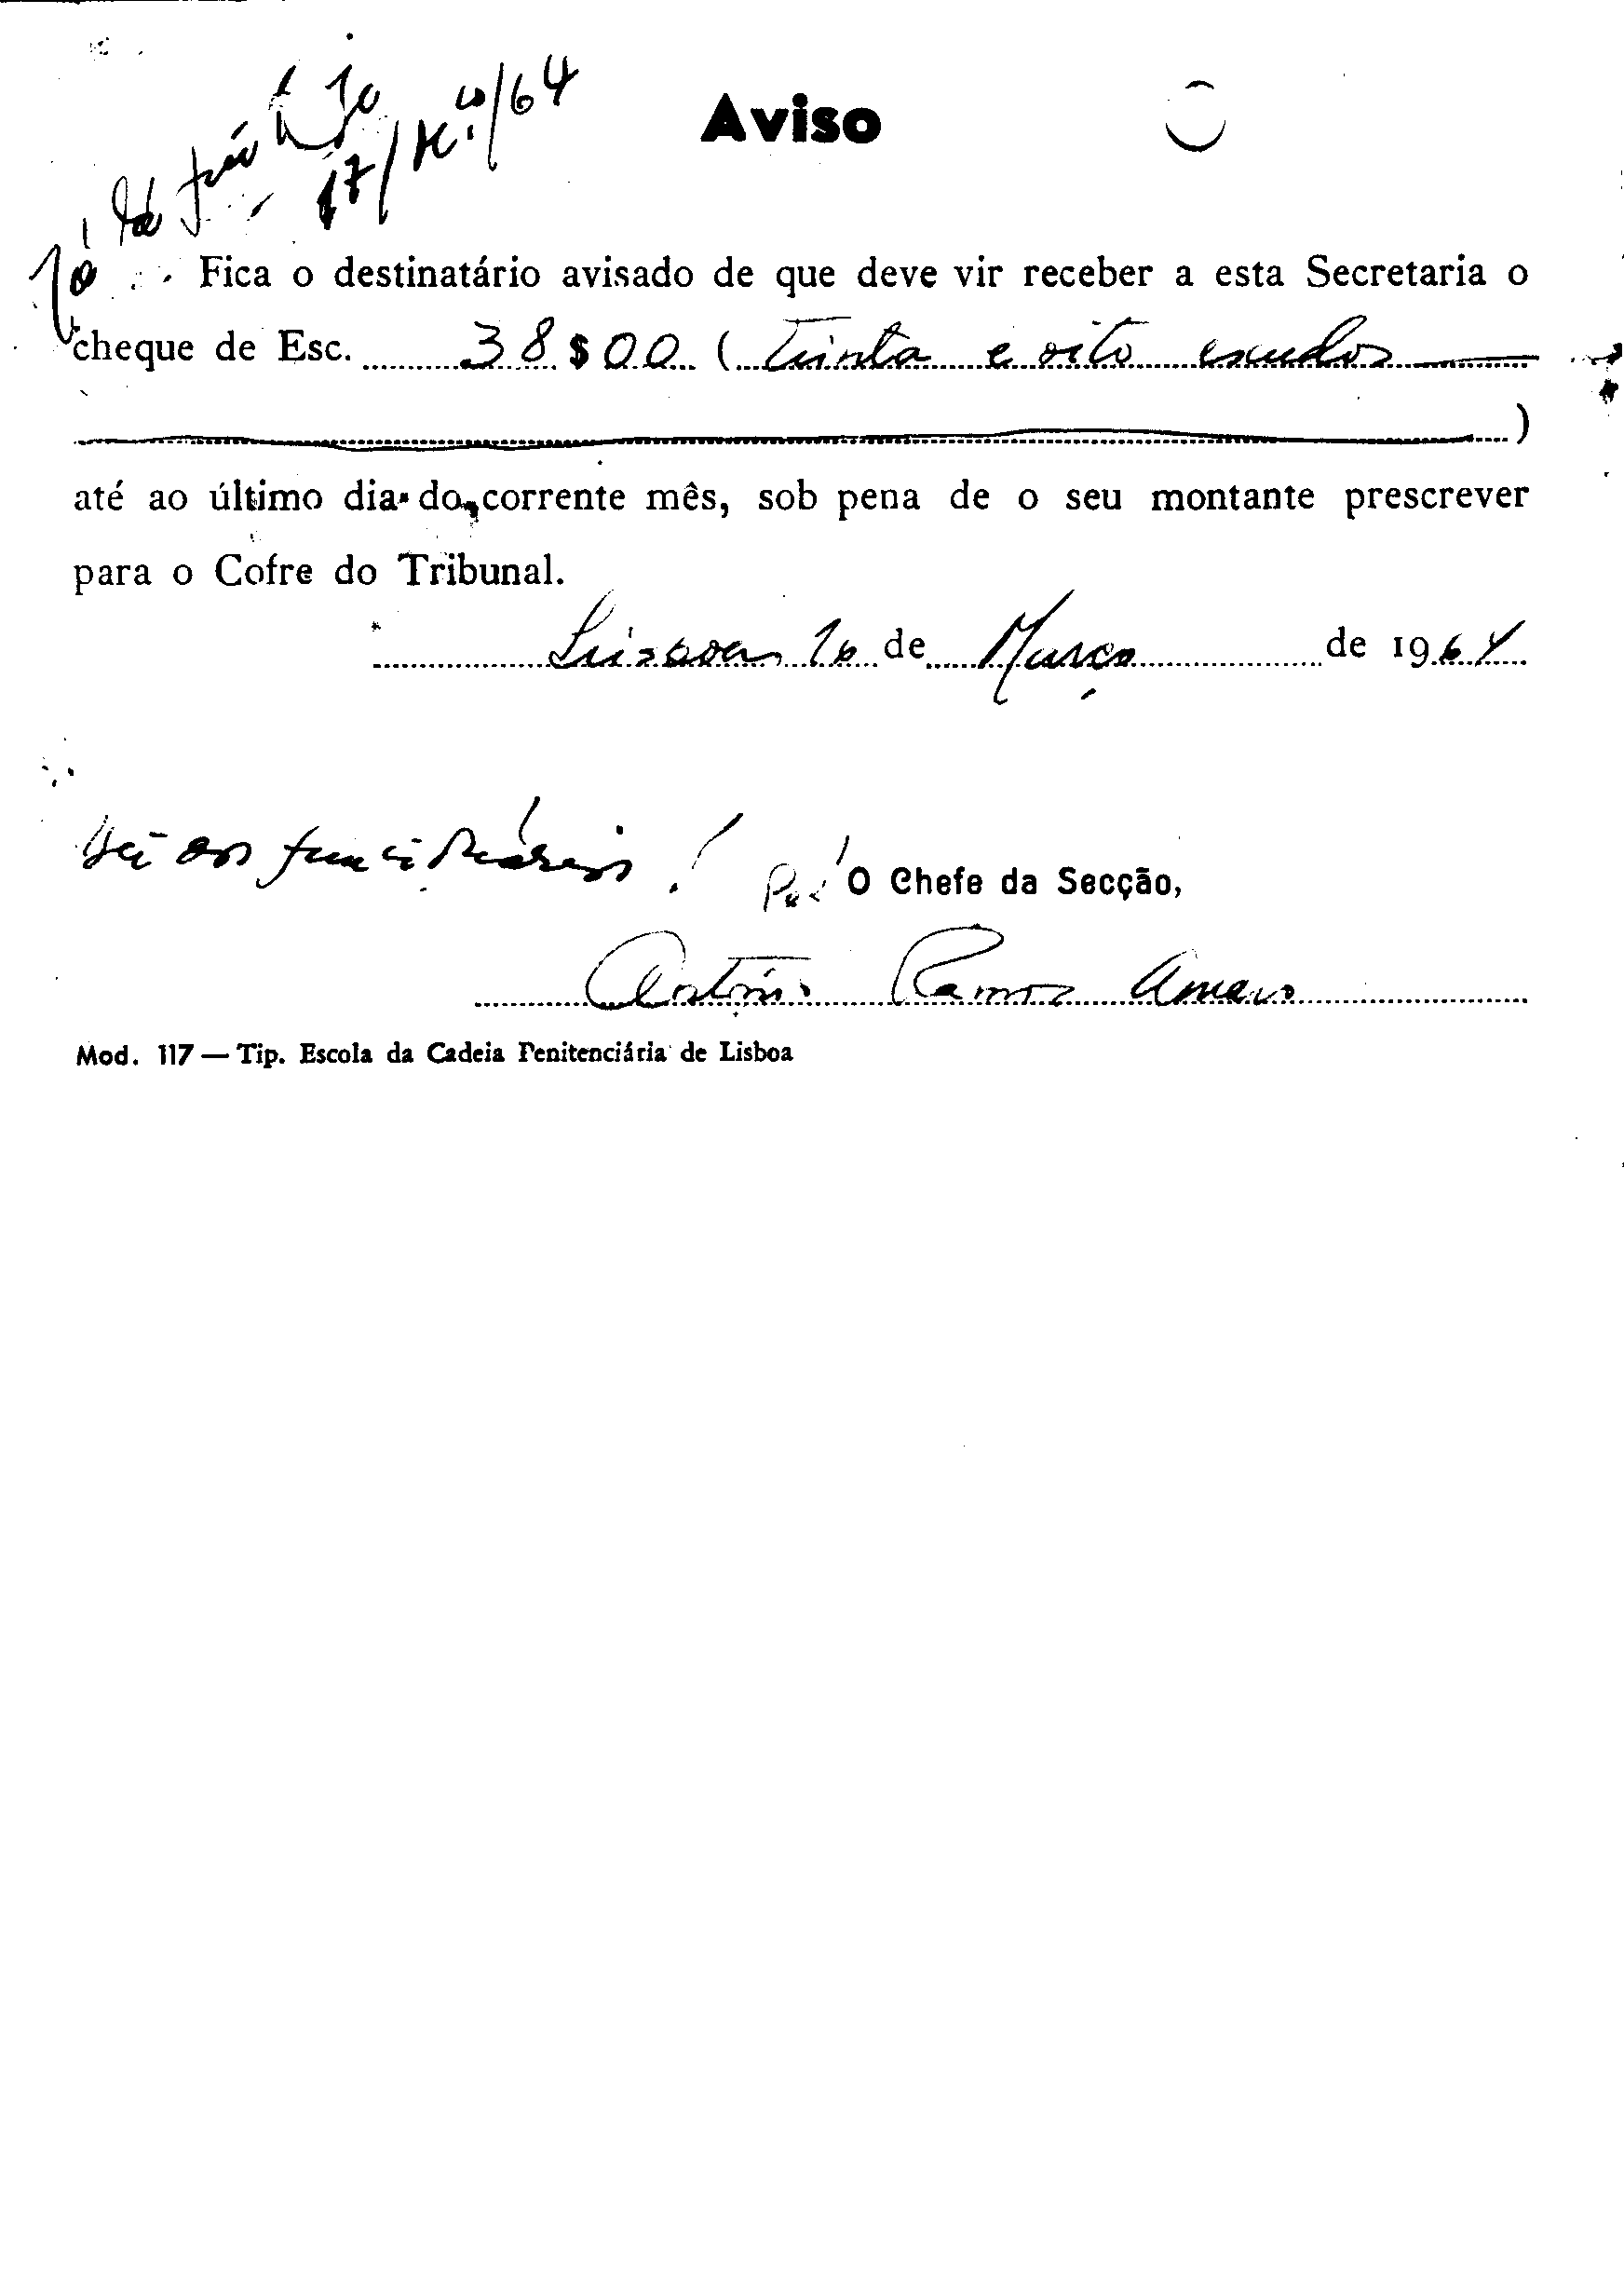 17/ /64
Aviso
Fica o destinatário avisado de que deve vir receber a esta Secretaria o
cheque de Esc. 38$00 ( Trinta e oito escudos
)
até ao último dia do corrente mês, sob pena de o seu montante prescrever
para o Cofre do Tribunal.
Lisboa 16 de Março de 1964
Dei aos funcionários!
O Chefe da Secção,
António Ramos Amaro
Mod. 117 — Tip. Escola da Cadeia Penitenciária de Lisboa